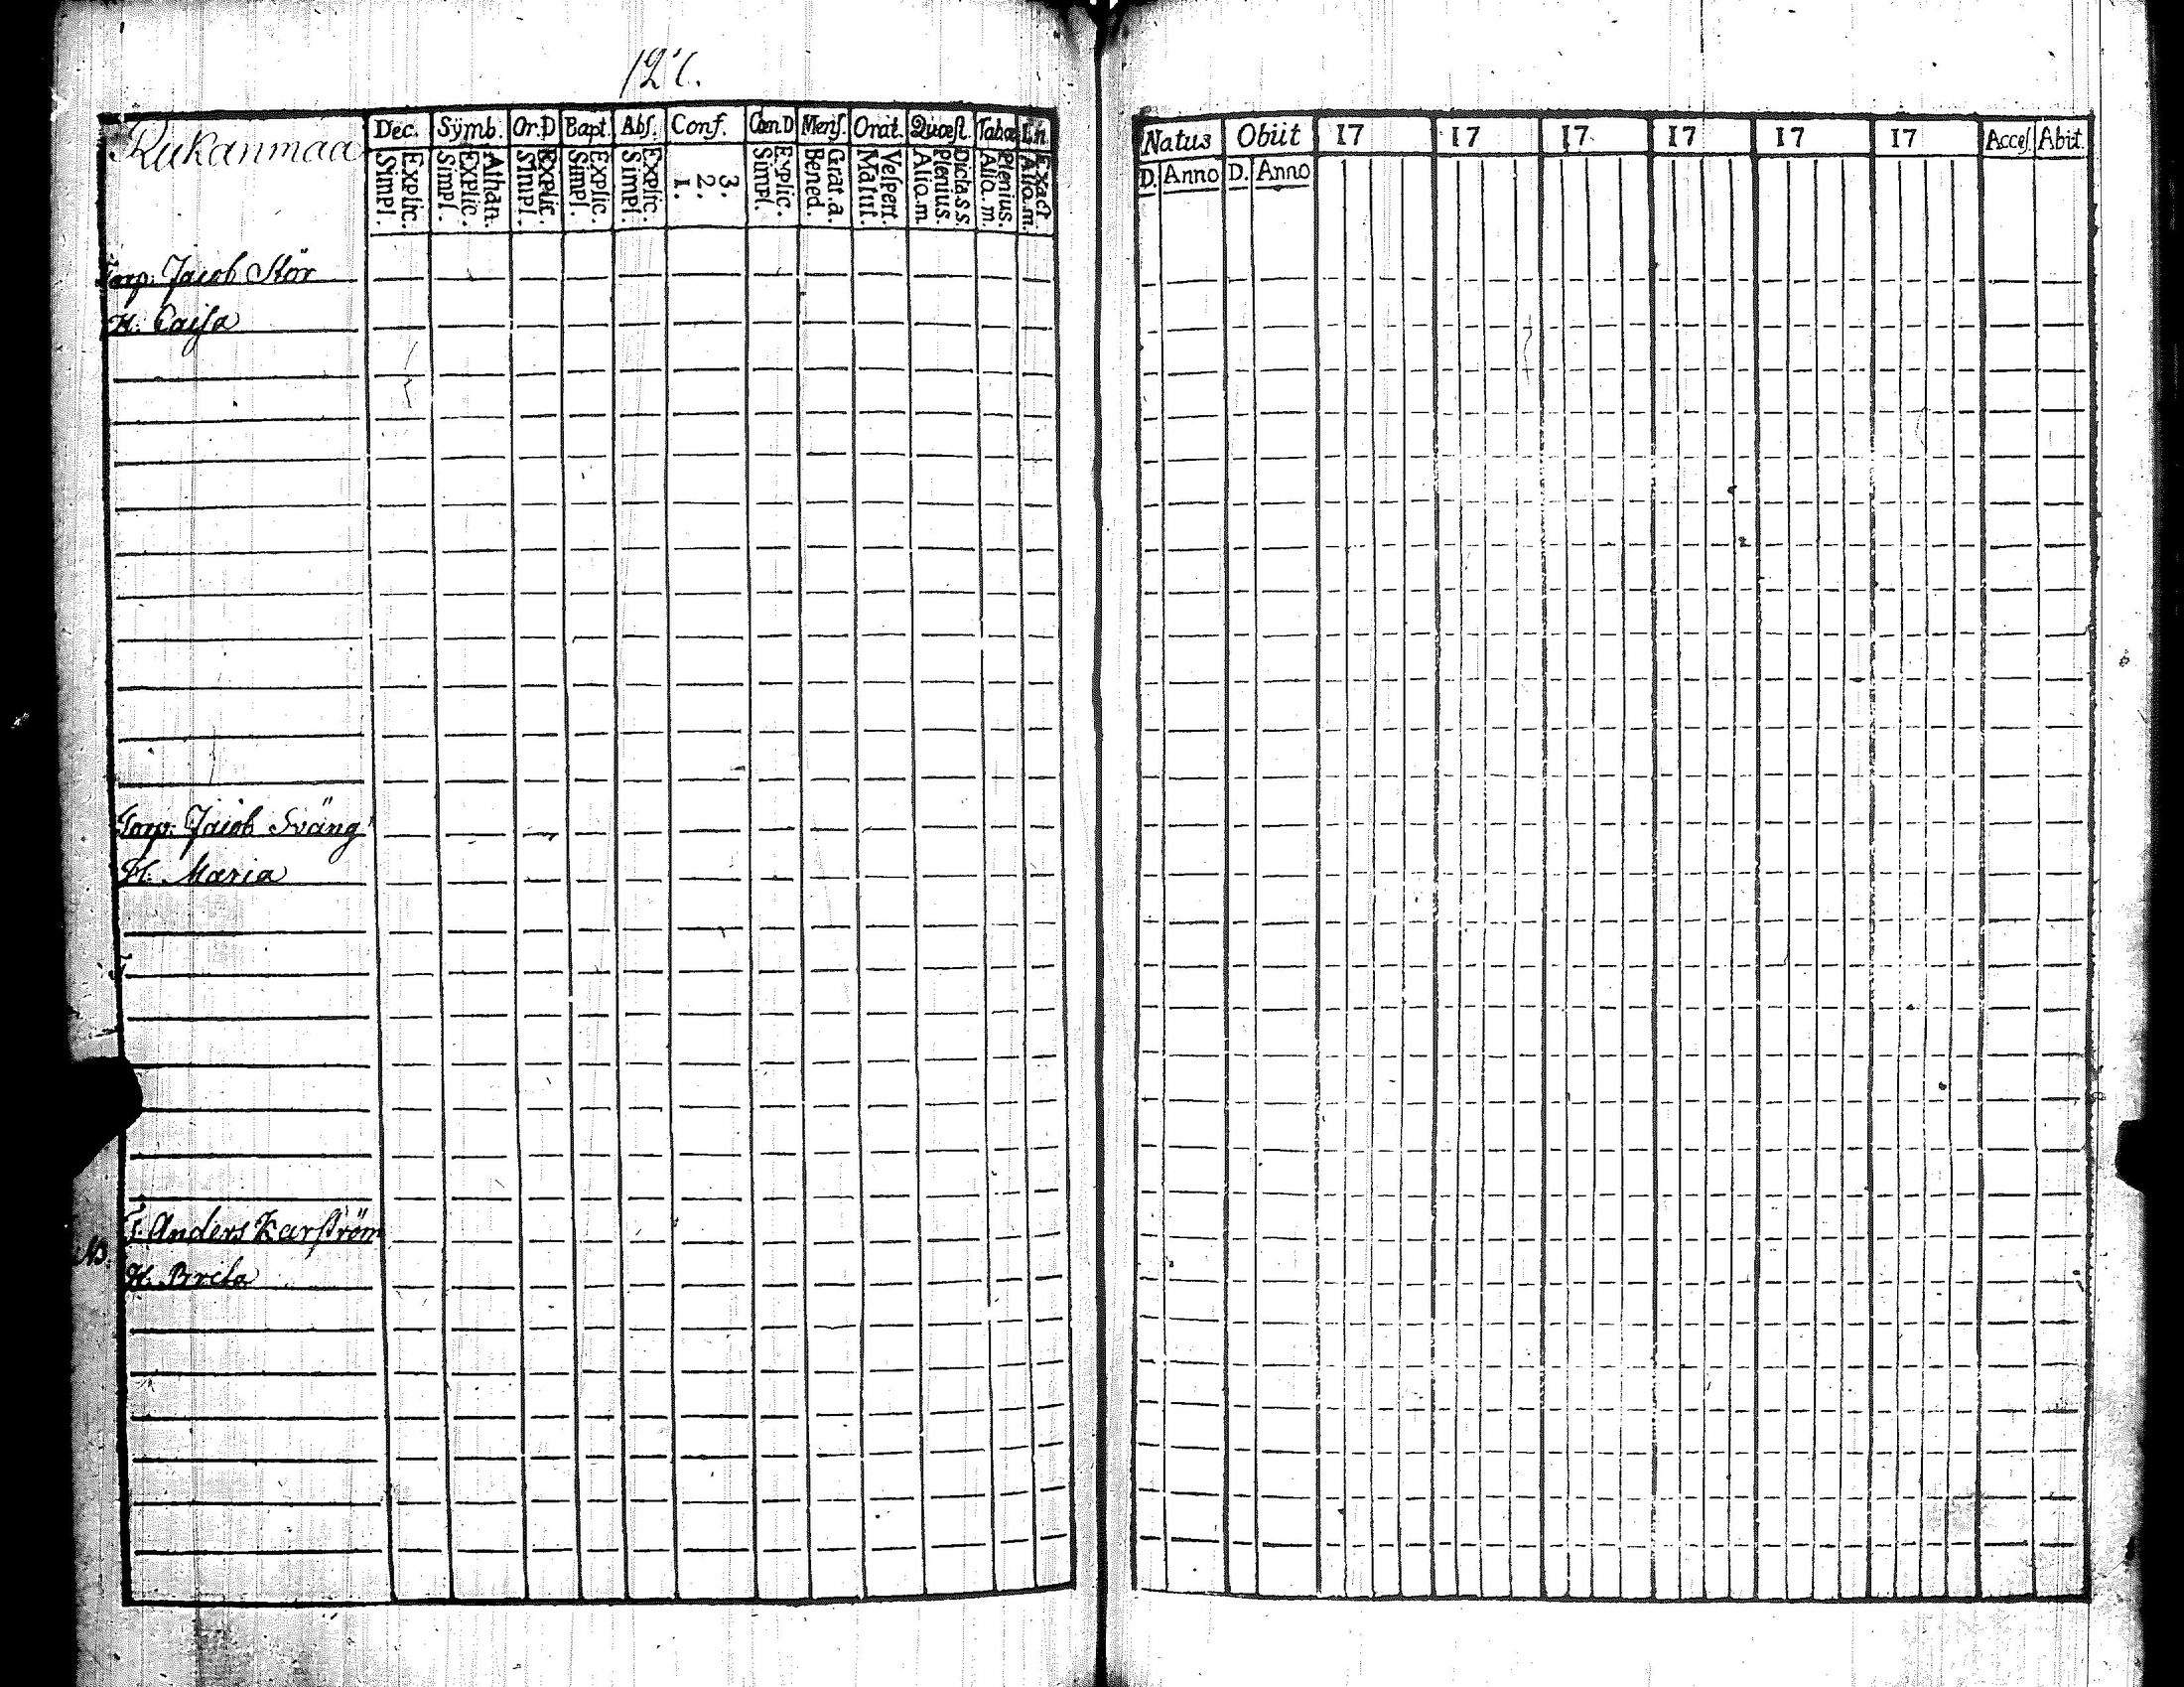 Rukanmaa
Dec. Sÿmb. Or.D Bapt. Abſ. Conf. Cœn.D Menſ. Orat. Quæſt. Tabæ L.n.
Explic. Simpl. Athan. Explic. Simpl. Explic. Simpl. Explic. Simpl. Explic. Simpl. 3. 2. 1. Explic. Simpl. Grat.a. Bened. Veſpert. Matut. Dicta.s.s. Plenius. Alio.m. Plenius. Alio.m. Exact Alio.m.
Torp. Jacob Stör
H. Caiſa
Torp. Jacob Sväng
H. Maria
T.
T. Anders Karſtröm
NB.
H. Brita
Natus Obiit 17 17 17 17 17 17 Acceſ. Abiit.
D. Anno D. Anno